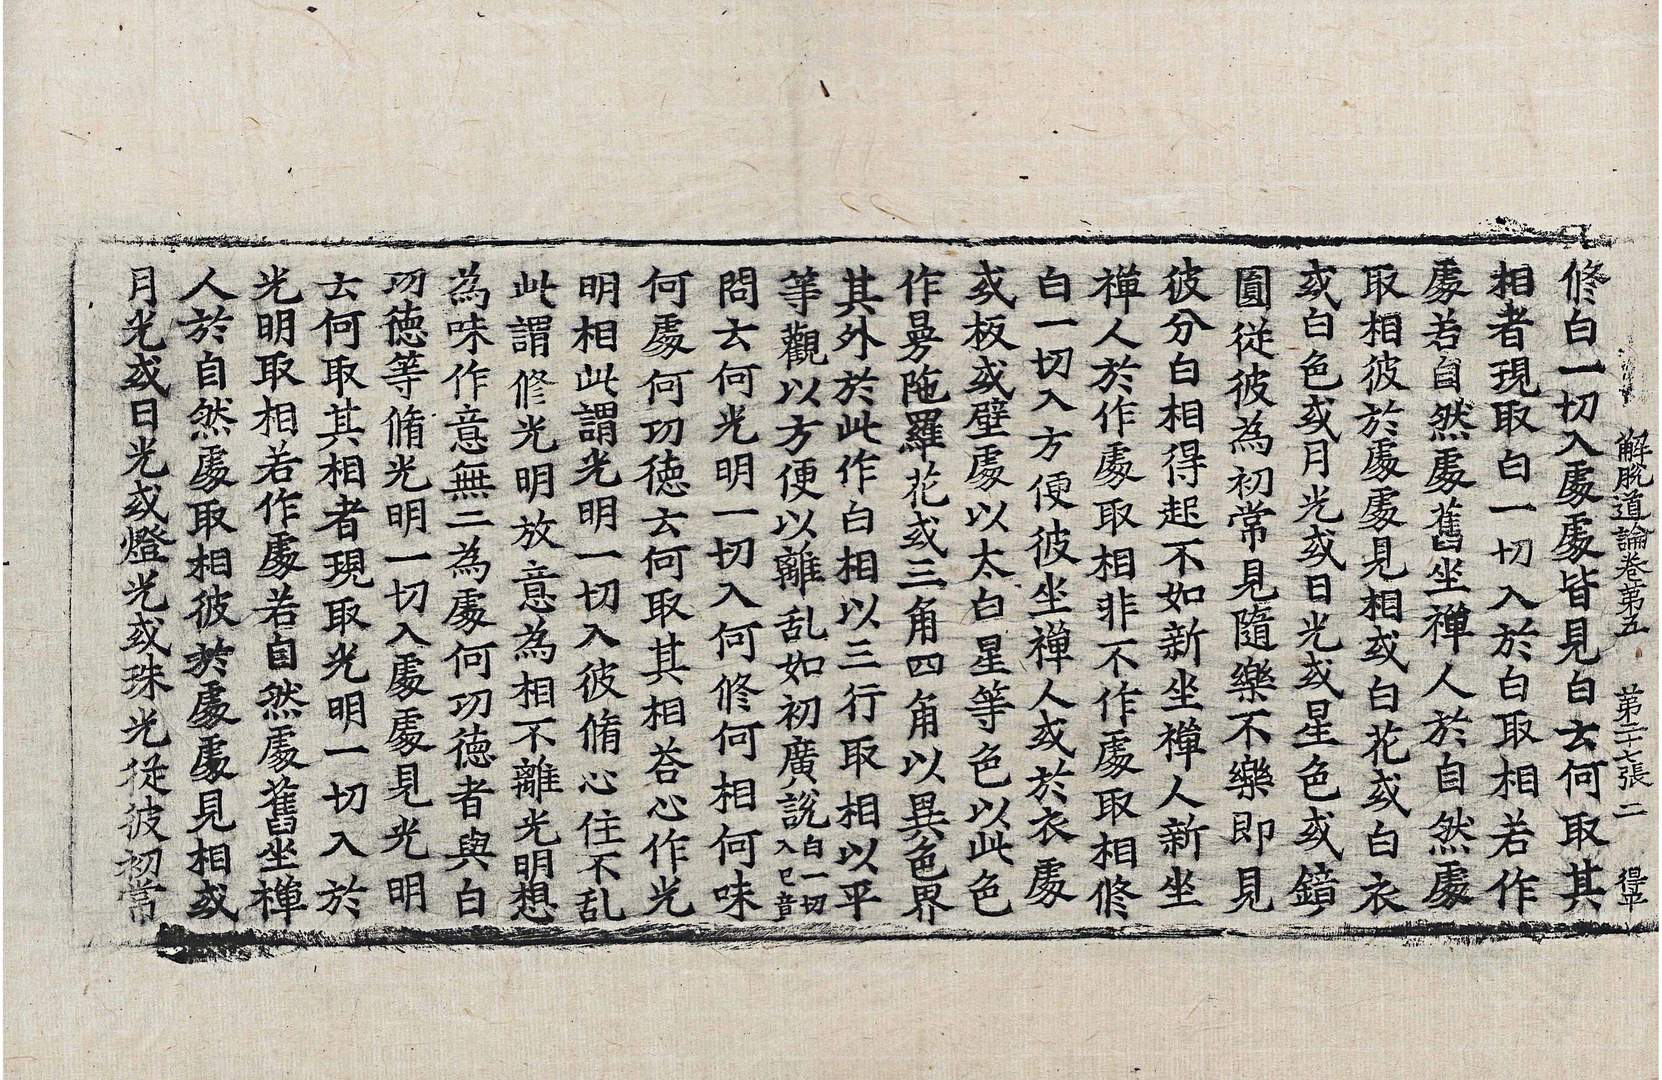 解脫道論卷第五　第二十七張　二　得平
修白一切入處處皆見白云何取其
相者現取白一切入於白取相若作
處若自然處舊坐禪人於自然處
取相彼於處處見相或白花或白衣
或白色或月光或日光或星色或鏡
圓從彼為初常見隨樂不樂即見
彼分白相得起不如新坐禪人新坐
禪人於作處取相非不作處取相修
白一切入方便彼坐禪人或於衣處
或板或壁處以太白星等色以此色
作曼陁羅花或三角四角以異色界
其外於此作白相以三行取相以平
等觀以方便以離乱如初廣說白一切入已竟
問云何光明一切入何修何相何味
何處何功德云何取其相荅心作光
明相此謂光明一切入彼脩心住不乱
此謂修光明放意為相不離光明想
為味作意無二為處何功德者與白
功德等脩光明一切入處處見光明
云何取其相者現取光明一切入於
光明取相若作處若自然處舊坐禪
人於自然處取相彼於處處見相或
月光或日光或燈光或珠光從彼初常